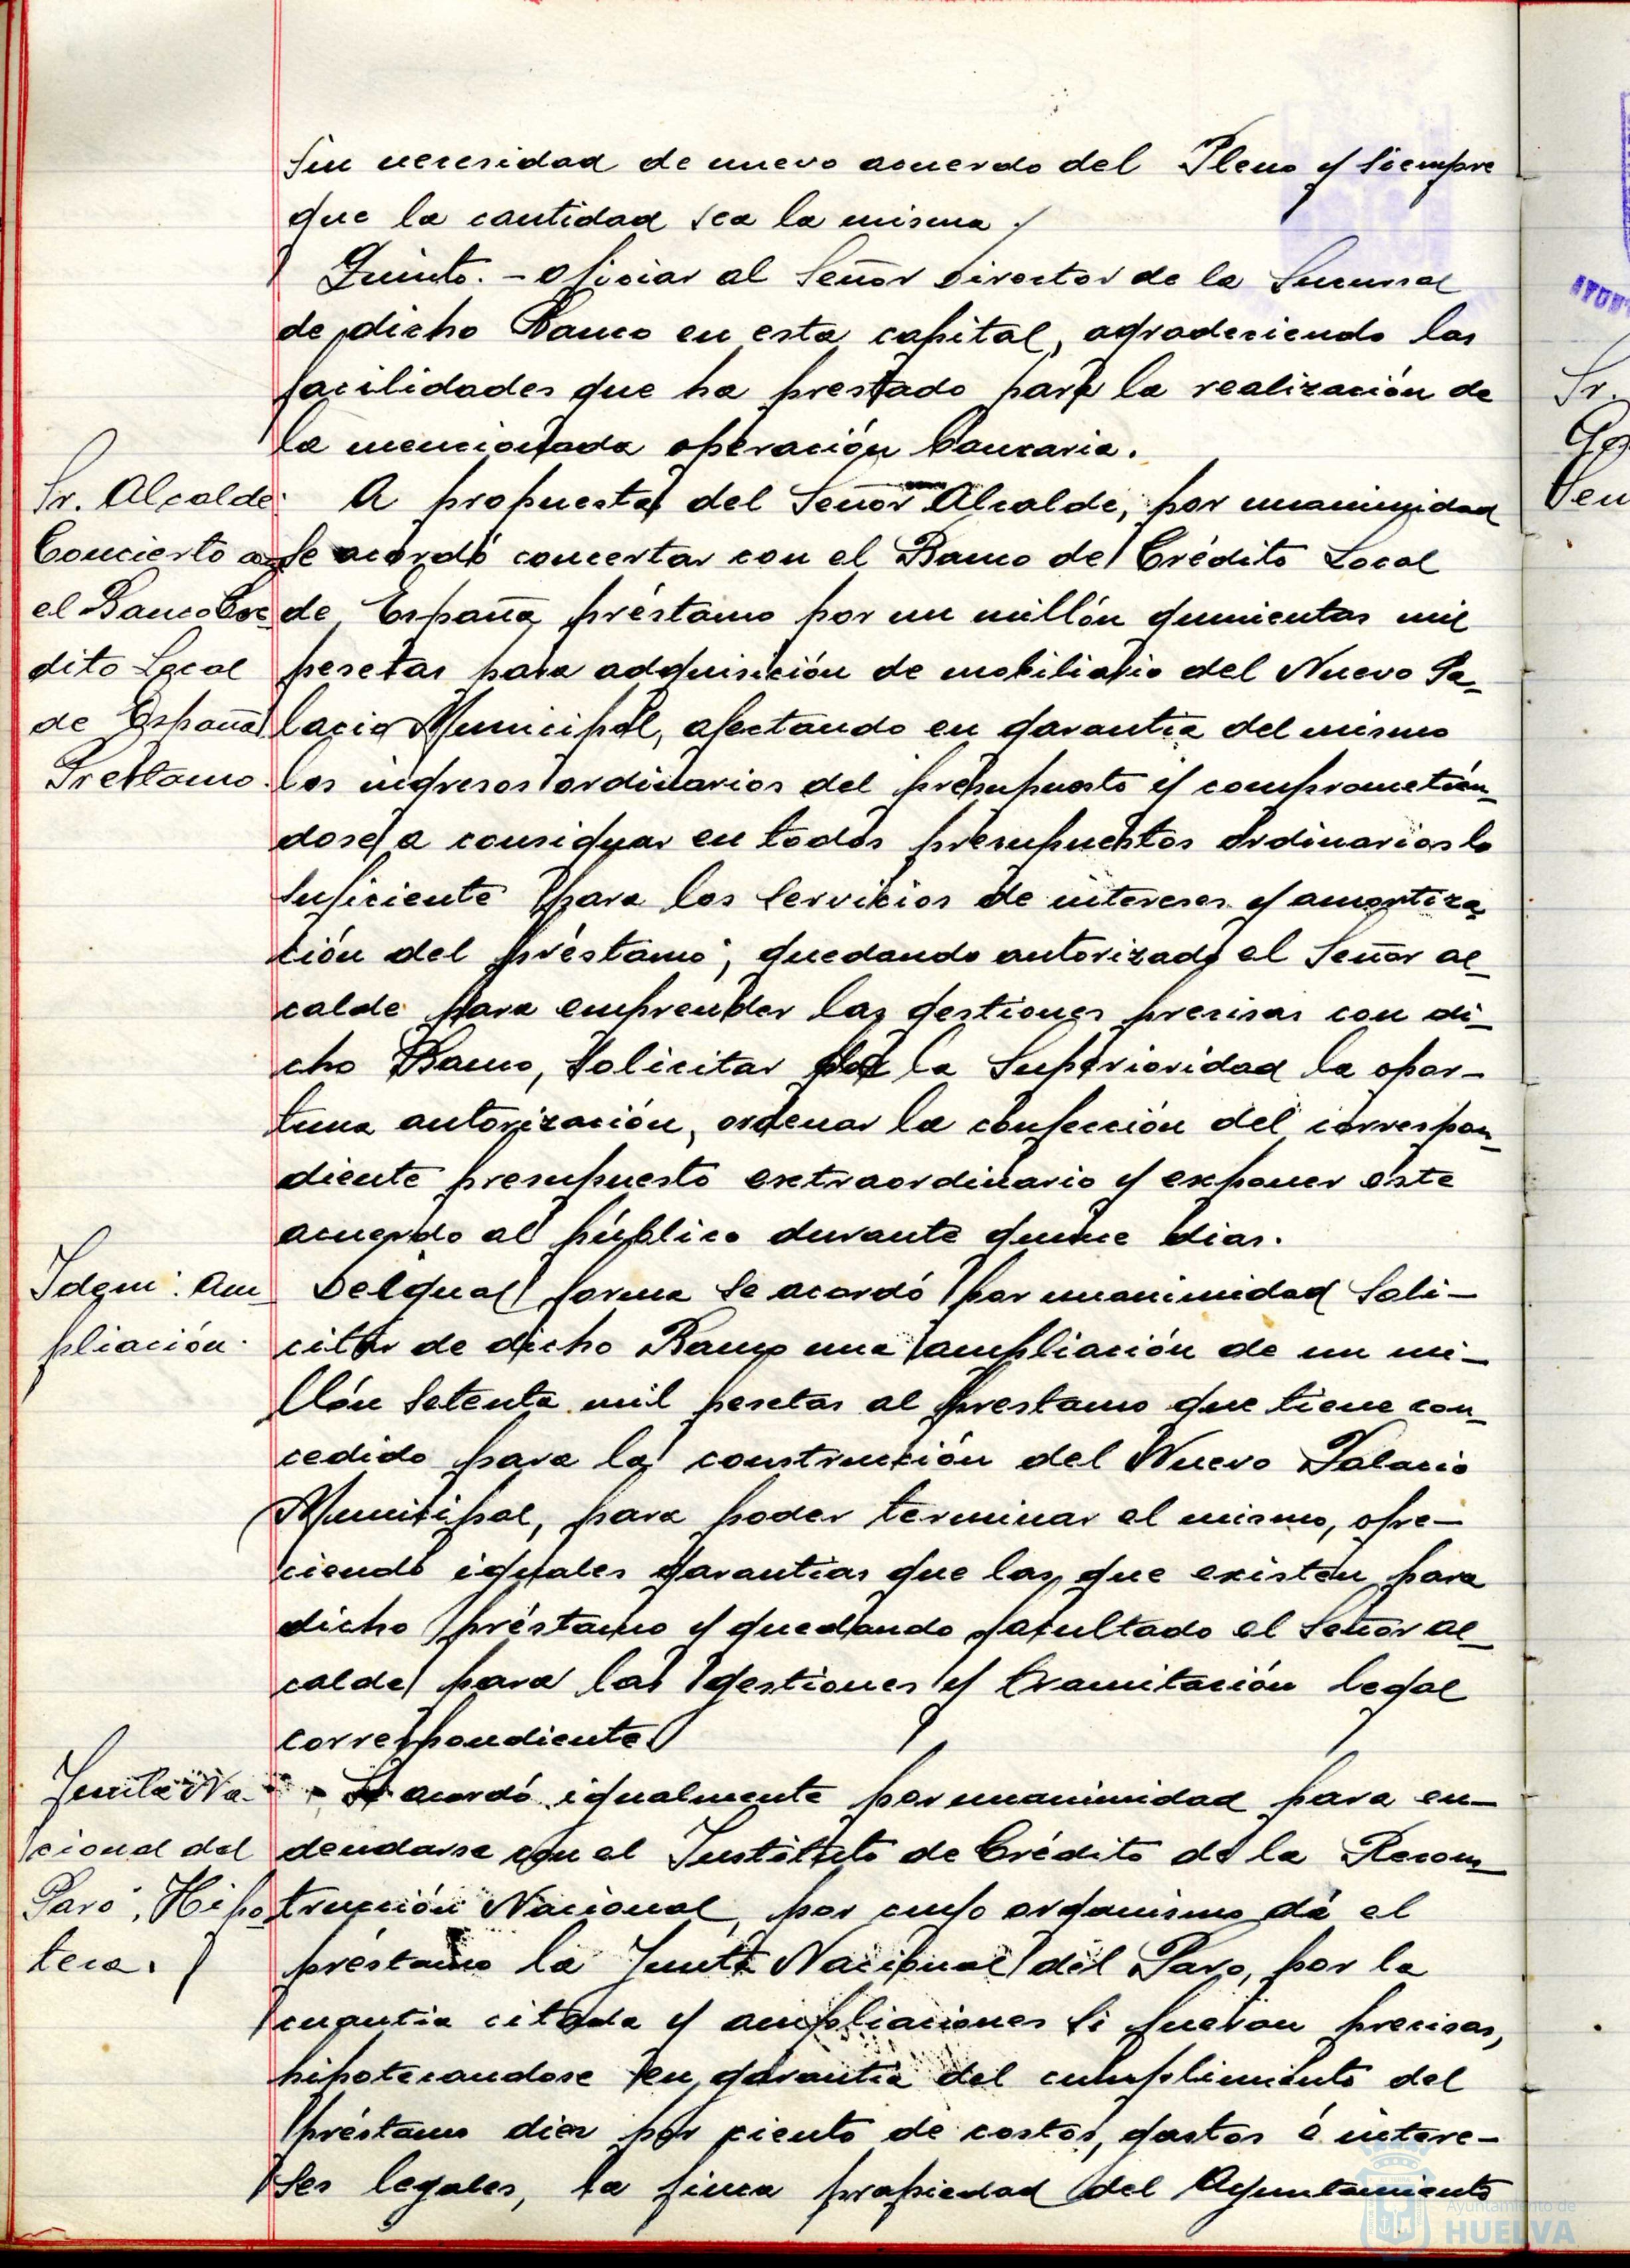 sin necesidad de nuevo acuerdo del Pleno y siempre
que la cantidad sea la misma.
Quinto.- Oficiar al Señor Director de la Sucursal
de dicho Banco en esta capital, agradeciendo las
facilidades que ha prestado para la realización de
la mencionada operación bancaria.
Sr. Alcalde
Concierto con
el Banco Cré-
dito Local
de España
Prestamo.
A propuesta del Señor Alcalde, por unanimidad
se acordó concertar con el Banco de Crédito Local
de España préstamo por un millón quinientas mil
pesetas para adquisición de mobiliario del Nuevo Pa-
lacio Municipal, afectando en garantia del mismo
los ingresos ordinarios del presupuesto y comprometién-
dose a consignar en todos presupuestos ordinarios lo
suficiente para los servicios de intereses y amortiza-
ción del préstamo; quedando autorizado el Señor Al-
calde para emprender las gestiones precisas con di-
cho Banco, solicitar de la Superioridad la opor-
tuna autorización, ordenar la confección del correspon-
diente presupuesto extraordinario y exponer este
acuerdo al público durante quince dias.
Idem. Am-
pliación.
De igual forma se acordó por unanimidad soli-
citar de dicho Banco una ampliación de un mi-
llón setenta mil pesetas al prestamo que tiene con-
cedido para la construcción del Nuevo Palacio
Municipal, para poder terminar el mismo, ofre-
ciendo iguales garantias que las que existen para
dicho préstamo y quedando facultado el Señor Al-
calde para las gestiones y tramitación legal
correspondiente.
Junta Na-
cional del
Paro, Hipo-
teca.
Se acordó igualmente por unanimidad para en-
deudarse con el Instituto de Crédito de la Recons-
trucción Nacional, por cuyo organismo dá el
préstamo la Junta Nacional del Paro, por la
cuantia citada y ampliaciones si fueran precisas,
hipotecandose en garantia del cumplimiento del
préstamo diez por ciento de costos, gastos é intere-
ses legales, la finca propiedad del Ayuntamiento
Sr.
Ayuntamiento de
HUELVA